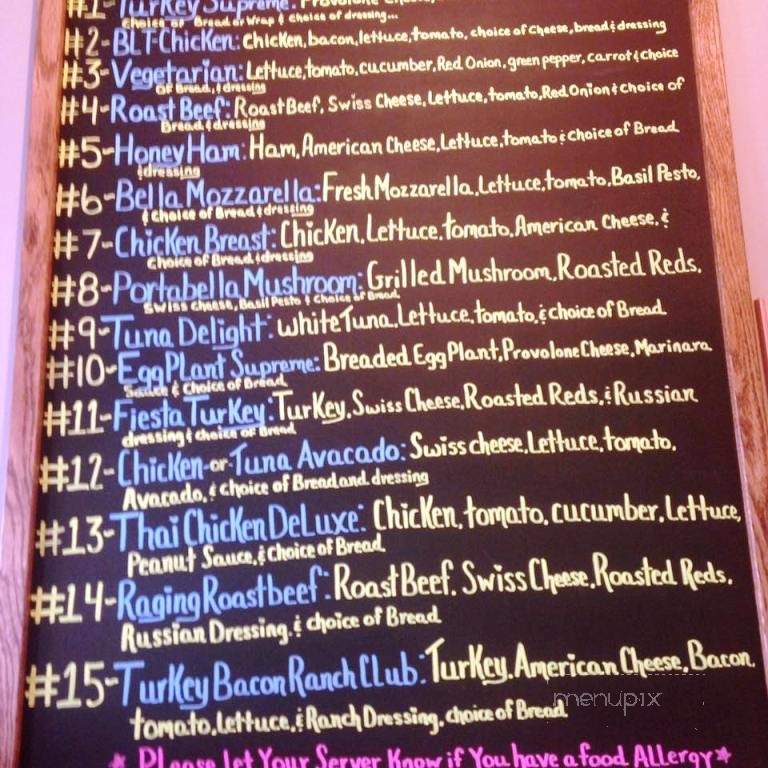 #1-Turkey Supreme: Provolone Cheese,
Choice of Bread or Wrap & choice of dressing...
#2-BLT-Chicken: Chicken, bacon, lettuce, tomato, choice of Cheese, bread & dressing
#3-Vegetarian: Lettuce, tomato, cucumber, Red Onion, green pepper, carrot & Choice
OF Bread, & dressing
#4-Roast Beef: Roast Beef, Swiss Cheese, Lettuce, tomato, Red Onion & choice of
Bread & dressing
#5-Honey Ham: Ham, American Cheese, Lettuce, tomato & Choice of Bread
& dressing
#6-Bella Mozzarella: Fresh Mozzarella, Lettuce, tomato, Basil Pesto,
& Choice of Bread & dressing
#7-Chicken Breast: Chicken, Lettuce, tomato, American Cheese, &
Choice of Bread & dressing
#8-Portabella Mushroom: Grilled Mushroom, Roasted Reds,
Swiss cheese, Basil Pesto & Choice of Bread
#9-Tuna Delight: white Tuna, Lettuce, tomato, & choice of Bread
#10-EggPlant Supreme: Breaded EggPlant, Provolone Cheese, Marinara
Sauce & Choice of Bread
#11-Fiesta Turkey: Turkey, Swiss Cheese, Roasted Reds, & Russian
dressing & choice of Bread
#12-Chicken-or-Tuna Avacado: Swiss cheese, Lettuce, tomato,
Avacado, & Choice of Bread and dressing
#13-Thai Chicken DeLuxe: Chicken, tomato, cucumber, Lettuce,
Peanut Sauce, & Choice of Bread
#14-Raging Roastbeef: Roast Beef, Swiss Cheese, Roasted Reds,
Russian Dressing, & choice of Bread
#15-Turkey Bacon Ranch Club: Turkey, American Cheese, Bacon,
tomato, Lettuce, & Ranch Dressing, choice of Bread
menupix
* Please Let Your Server Know if You have a food Allergy *